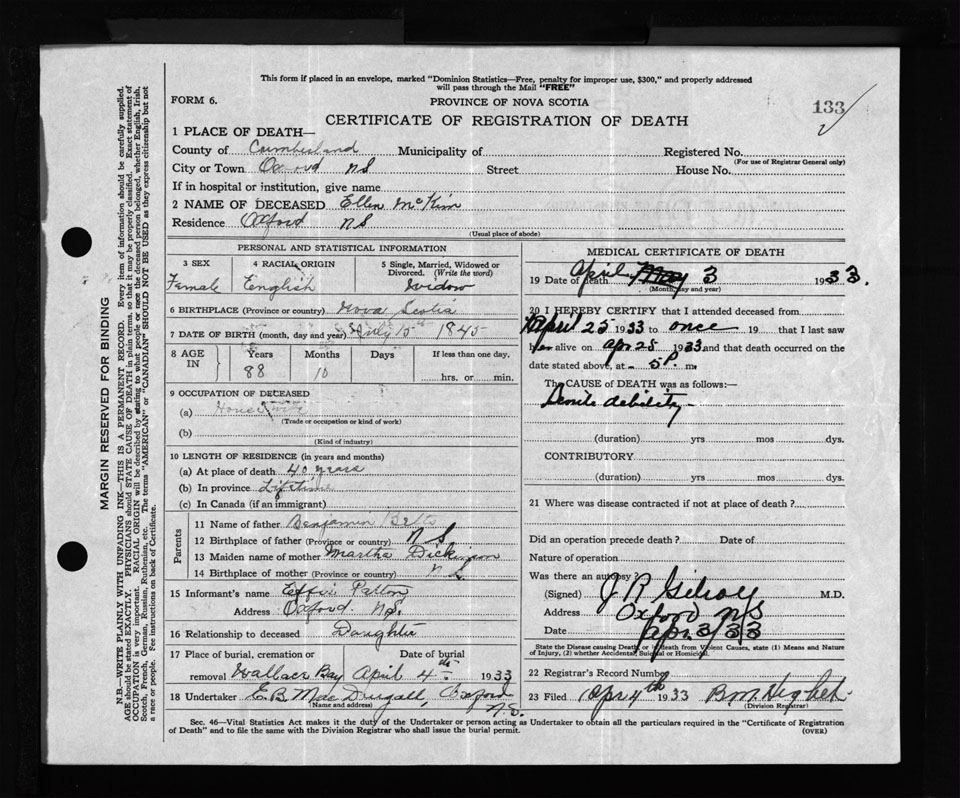 This form if placed in an envelope, marked "Dominion Statistics—Free, penalty for improper use, $300," and properly addressed
will pass through the Mail "FREE"
FORM 6.
PROVINCE OF NOVA SCOTIA
133
CERTIFICATE OF REGISTRATION OF DEATH
1 PLACE OF DEATH—
County of Cumberland Municipality of Registered No.
(For use of Registrar General only)
City or Town NS Street House No.
If in hospital or institution, give name
2 NAME OF DECEASED Ellen McKim
Residence Oxford NS
(Usual place of abode)
PERSONAL AND STATISTICAL INFORMATION
3 SEX 4 RACIAL ORIGIN 5 Single, Married, Widowed or
Divorced. (Write the word)
Female English Widow
6 BIRTHPLACE (Province or country) Nova Scotia
7 DATE OF BIRTH (month, day and year) 1845
8 AGE IN Years Months Days If less than one day.
88 10 hrs. or min.
9 OCCUPATION OF DECEASED
(a)
(Trade or occupation or kind of work)
(b)
(Kind of industry)
10 LENGTH OF RESIDENCE (in years and months)
(a) At place of death 40 years
(b) In province Lifetime
(c) In Canada (if an immigrant)
Parents
11 Name of father Benjamin Betts
12 Birthplace of father (Province or country) N S
13 Maiden name of mother Martha Dickinson
14 Birthplace of mother (Province or country) N S
15 Informant's name Effie Patton
Address Oxford. N.S.
16 Relationship to deceased Daughter
17 Place of burial, cremation or Date of burial
removal Wallace Bay April 4th 1933
18 Undertaker E.B. MacDougall, Oxford
(Name and address) N.S.
MEDICAL CERTIFICATE OF DEATH
19 Date of death April 3 1933.
(Month, day and year)
20 I HEREBY CERTIFY that I attended deceased from
April 25 1933 to once 19 that I last saw
her alive on Apr 25 1933 and that death occurred on the
date stated above, at 5 P. m.
The CAUSE OF DEATH was as follows:—
Senile debility
(duration) yrs mos dys.
CONTRIBUTORY
(duration) yrs mos dys.
21 Where was disease contracted if not at place of death?
Did an operation precede death? Date of
Nature of operation
Was there an autopsy?
(Signed) J. R. Gilroy M.D.
Address Oxford NS
Date Apr 3/33
State the Disease causing Death, or in death from Violent Causes, state (1) Means and
Nature of Injury, (2) whether Accidental, Suicidal or Homicidal.
22 Registrar's Record Number
23 Filed Apr 4th 1933
(Division Registrar)
Sec. 46—Vital Statistics Act makes it the duty of the Undertaker or person acting as Undertaker to obtain all the particulars required in the "Certificate of Registration
of Death" and to file the same with the Division Registrar who shall issue the burial permit.
(OVER)
MARGIN RESERVED FOR BINDING
N.B.—WRITE PLAINLY WITH UNFADING INK—THIS IS A PERMANENT RECORD. Every item of information should be carefully supplied.
AGE should be stated EXACTLY. PHYSICIANS should STATE CAUSE OF DEATH in plain terms, so that it may be properly classified. Exact statement of
OCCUPATION is very important. RACIAL ORIGIN will be described by stating to what people or race the deceased person belonged, whether English, Irish,
Scotch, French, German, Russian, Ruthenian, etc. The terms "AMERICAN" or "CANADIAN" SHOULD NOT BE USED as they express citizenship but not
a race or people. See instructions on back of Certificate.